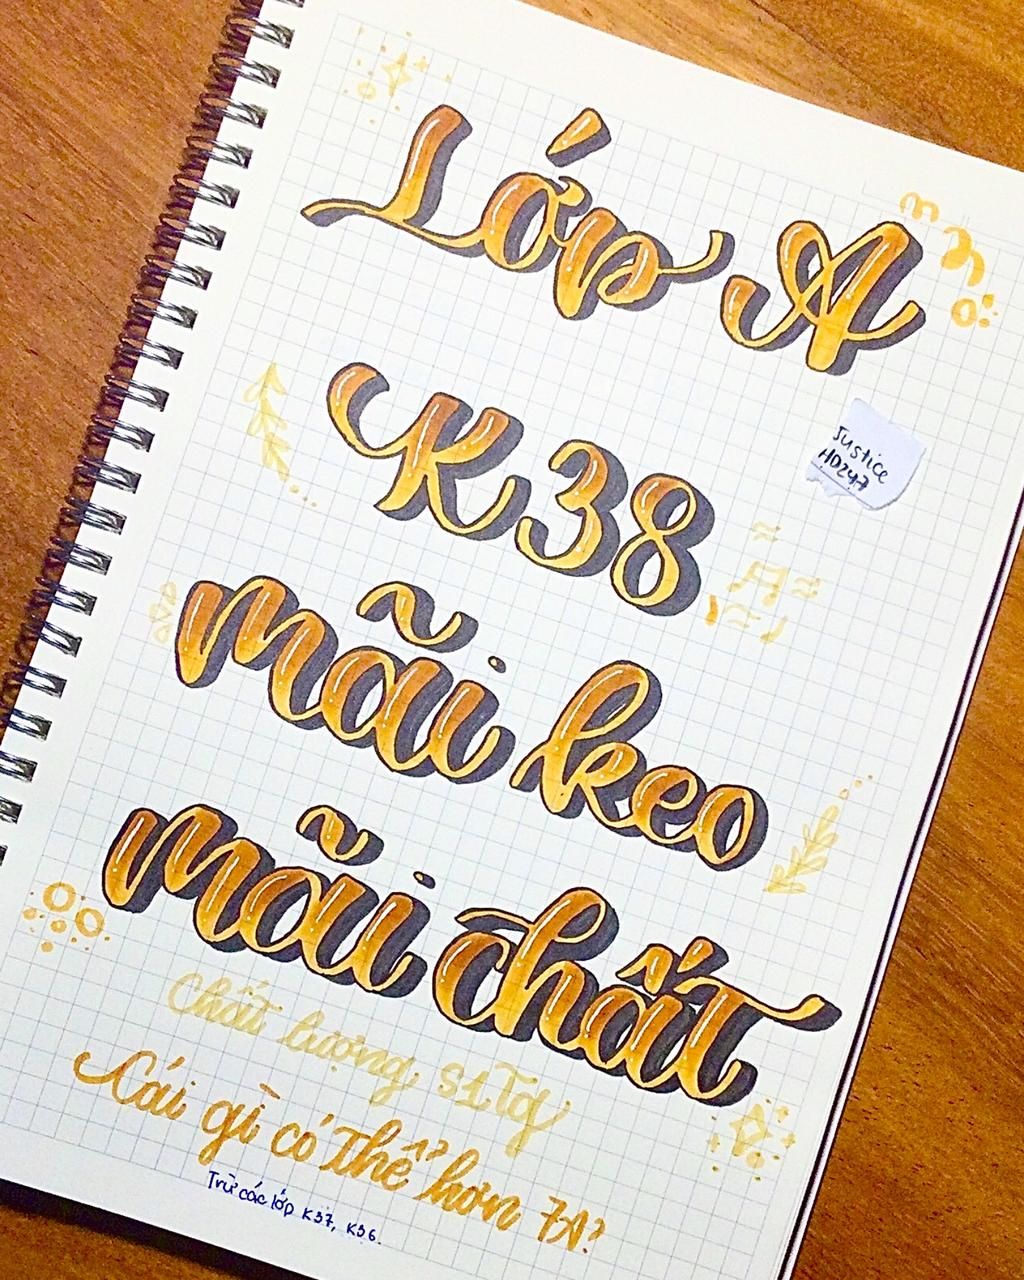 Lớp A
Justice
HD247
K38
mãi keo
mãi chất
Chất lượng s1Tg
Cái gì có Thể hơn 7A?
Trừ các lớp K37, K36.